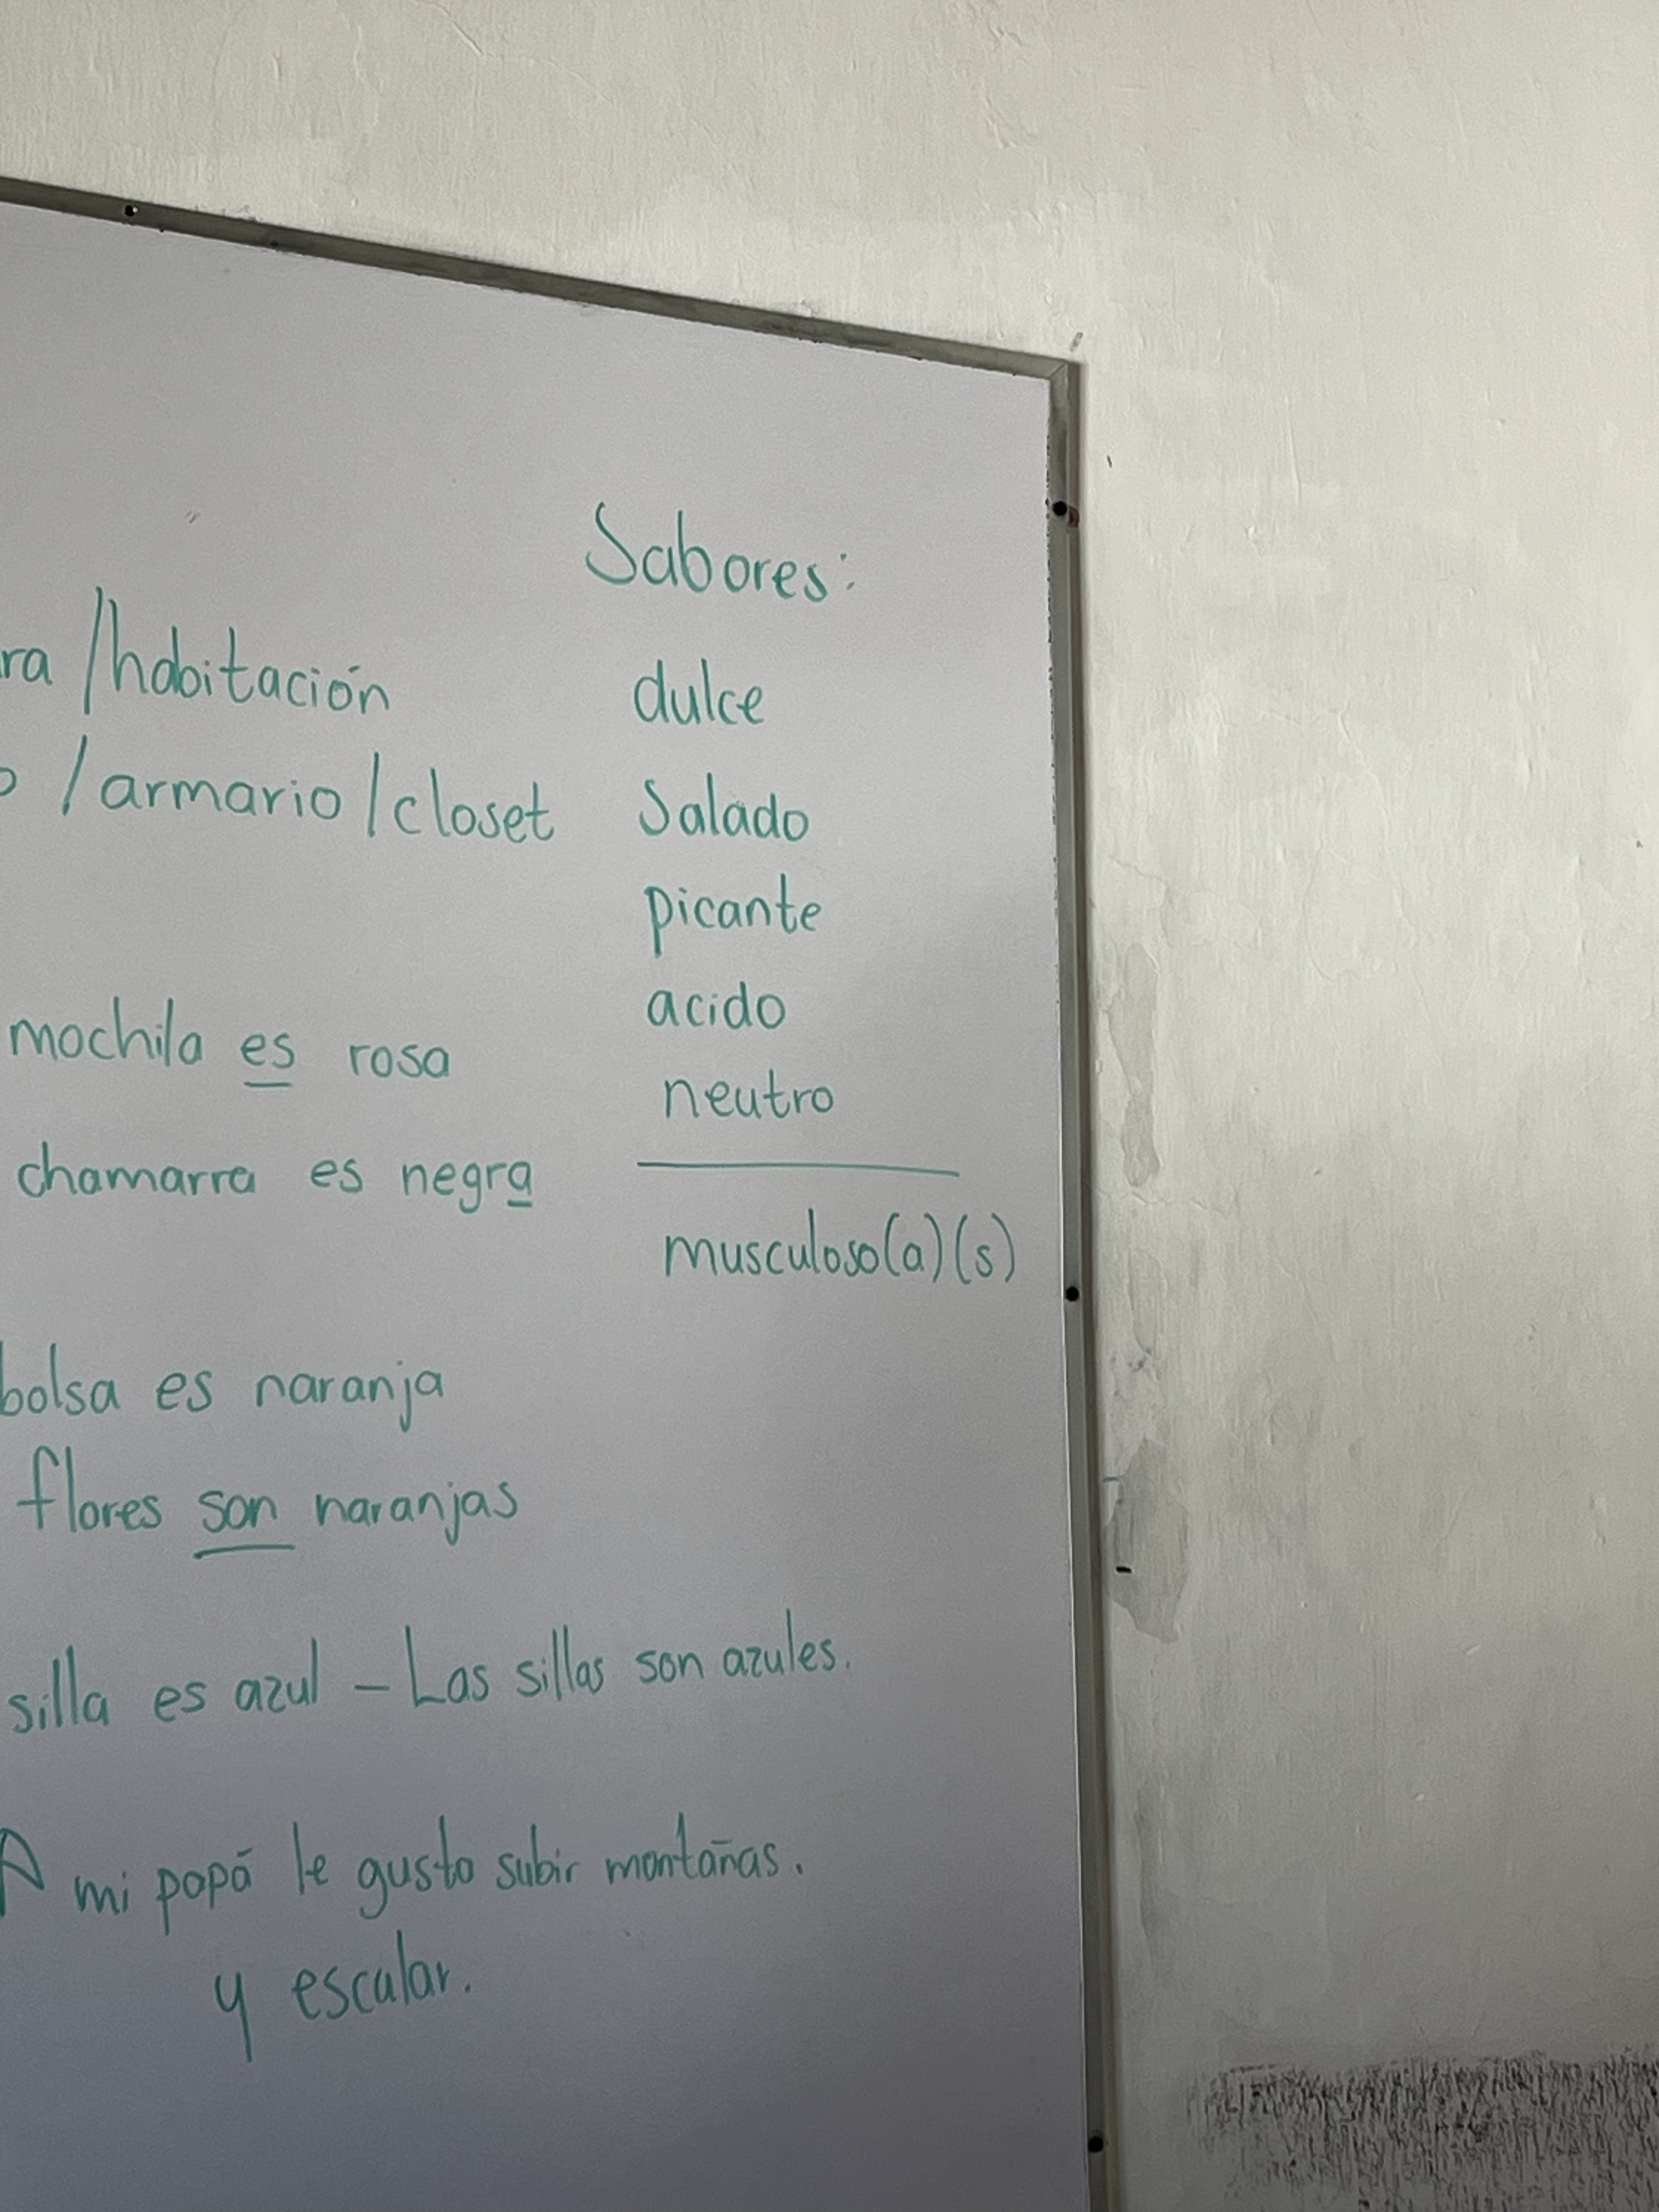 Sabores:
ra /habitación
/armario/closet
dulce
Salado
picante
acido
neutro
musculoso(a)(s)
mochila es rosa
chamarra es negra
bolsa es naranja
flores son naranjas
silla es azul – Las sillas son azules.
A mi papá le gusta subir montañas.
y escalar.